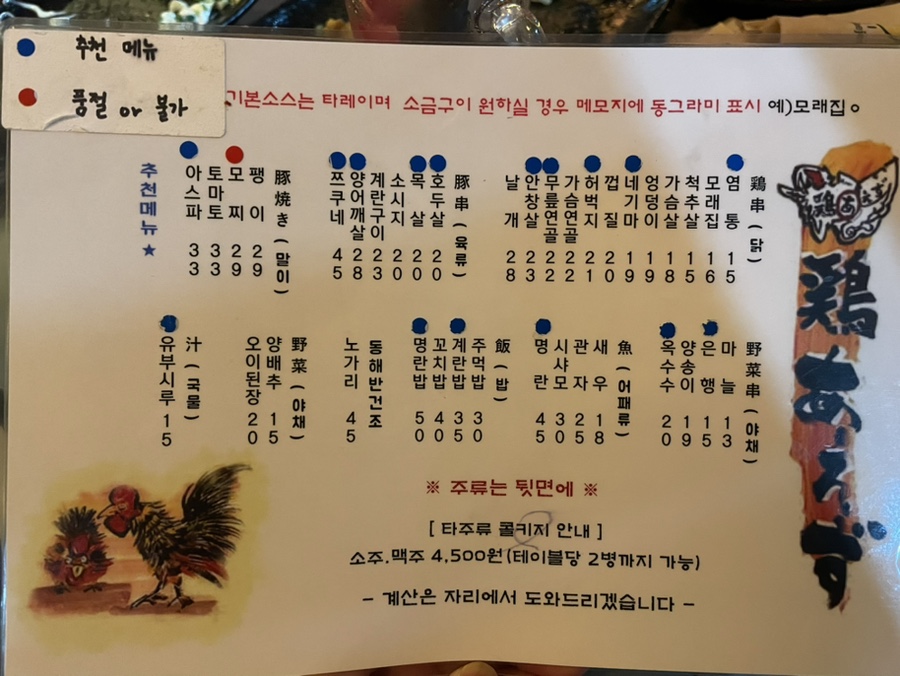 추천 메뉴
품절 or 불가
기본소스는 타레이며 소금구이 원하실 경우 메모지에 동그라미 표시 예)모래집o
鶏串(닭)
염통 15
모래집 16
척추살 15
가슴살 18
엉덩이 19
네기마 19
껍질 20
허벅지 21
가슴연골 22
무릎연골 22
안창살 23
날개 28
豚串(육류)
호두살 20
목살 20
소시지 20
계란구이 23
양어깨살 28
쯔쿠네 45
豚焼き(말이)
팽이 29
모찌 29
토마토 33
아스파 33
추천메뉴★
野菜串(야채)
마늘 13
은행 15
양송이 19
옥수수 20
魚(어패류)
새우 18
관자 25
시샤모 30
명란 45
飯(밥)
주먹밥 30
계란밥 35
꼬치밥 40
명란밥 50
동해반건조
노가리 45
野菜(야채)
양배추 15
오이된장 20
汁(국물)
유부시루 15
※ 주류는 뒷면에 ※
[ 타주류 콜키지 안내 ]
소주.맥주 4,500원(테이블당 2병까지 가능)
- 계산은 자리에서 도와드리겠습니다 -
鶏あえず